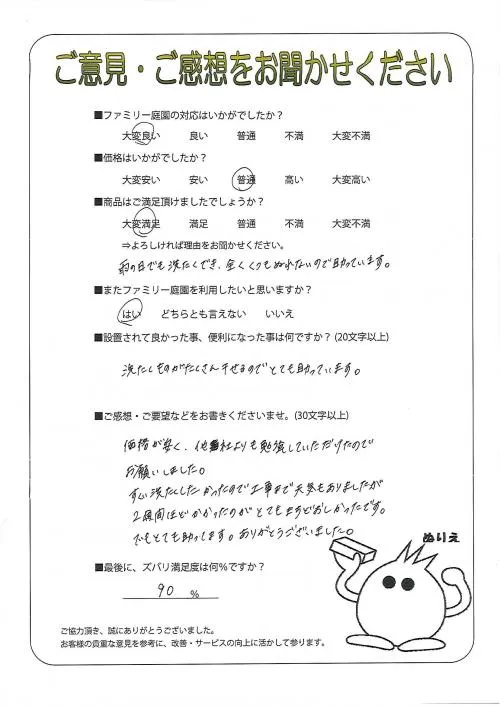 ご意見・ご感想をお聞かせください
■ファミリー庭園の対応はいかがでしたか？
大変良い 良い 普通 不満 大変不満
■価格はいかがでしたか？
大変安い 安い 普通 高い 大変高い
■商品はご満足頂けましたでしょうか？
大変満足 満足 普通 不満 大変不満
⇒よろしければ理由をお聞かせください。
雨の日でも洗たくでき、全くくつもぬれないので助っています。
■またファミリー庭園を利用したいと思いますか？
はい どちらとも言えない いいえ
■設置されて良かった事、便利になった事は何ですか？(20文字以上)
洗たくものがたくさん干せるのでとても助っています。
■ご感想・ご要望などをお書きくださいませ。(30文字以上)
価格が安く、他社よりも勉強していただけたので
お願いしました。
すぐ洗たくしたかったので工事まで天気もありましたが
2週間ほどかかったのがとてもまちどおしかったです。
でもとても助ってます。ありがとうございました。
■最後に、ズバリ満足度は何％ですか？
90 %
ぬりえ
ご協力頂き、誠にありがとうございました。
お客様の貴重な意見を参考に、改善・サービスの向上に活かして参ります。